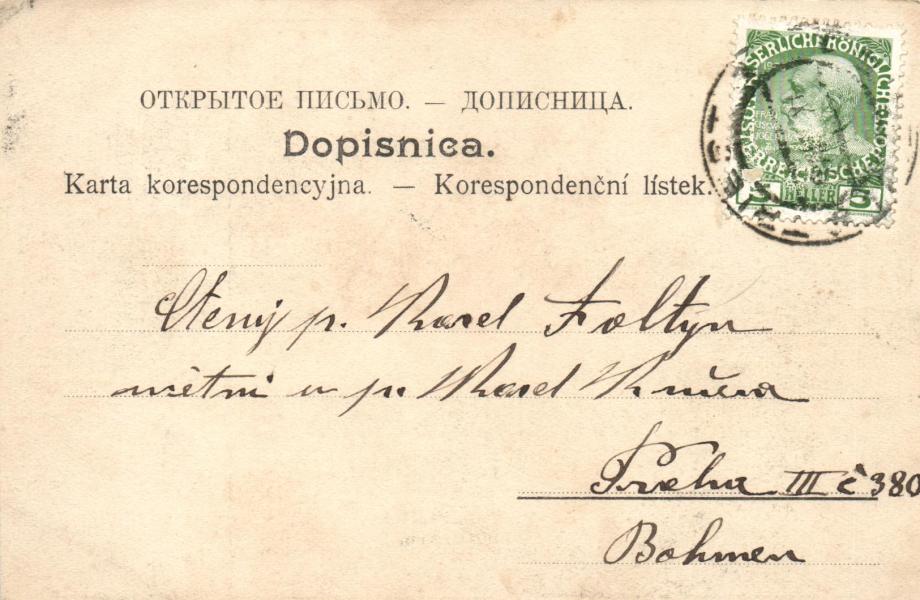 ОТКРЫТОЕ ПИСЬМО. — ДОПИСНИЦА.
Dopisnica.
Karta korespondencyjna. — Korespondenční lístek.
KAISERLICHE KÖNIGLICHE
ÖSTERREICHISCHE
5 HELLER 5
Ctený p. Karel Foltýn
účetní u p. Karel
Praha III č 380
Bohmen